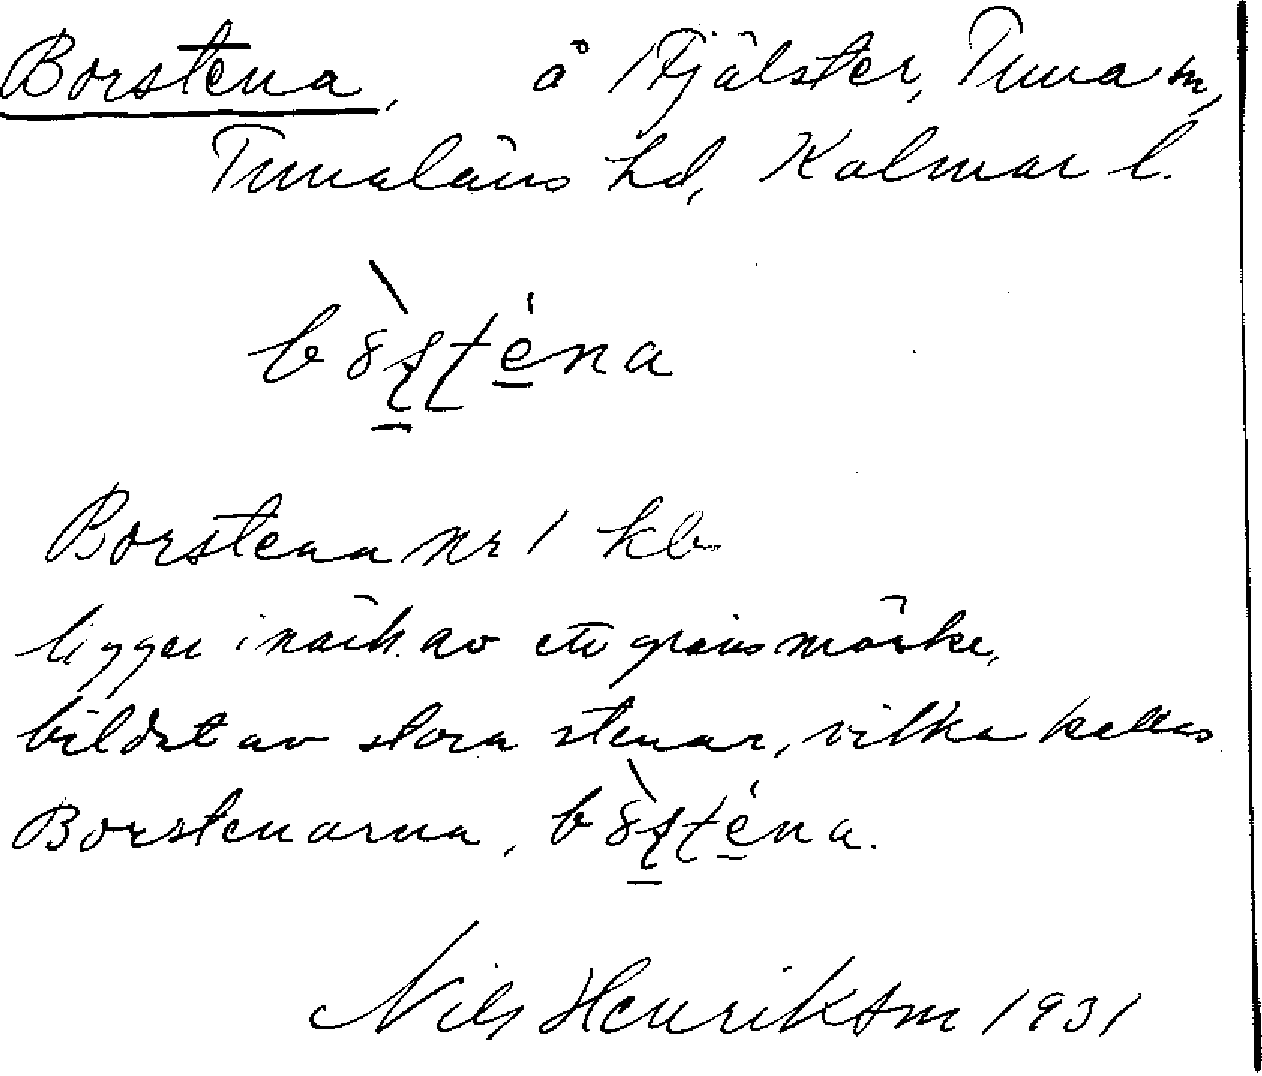 Borstena, å Hjälster, Tuna sn,
Tunaläns hd, Kalmar l.
bòʂʈéna
Borstena nr 1 kb
ligger i närh. av ett gränsmärke,
bildat av stora stenar, vilka kallas
Borstenarna, bòʂʈéna.
Nils Henriksson 1931